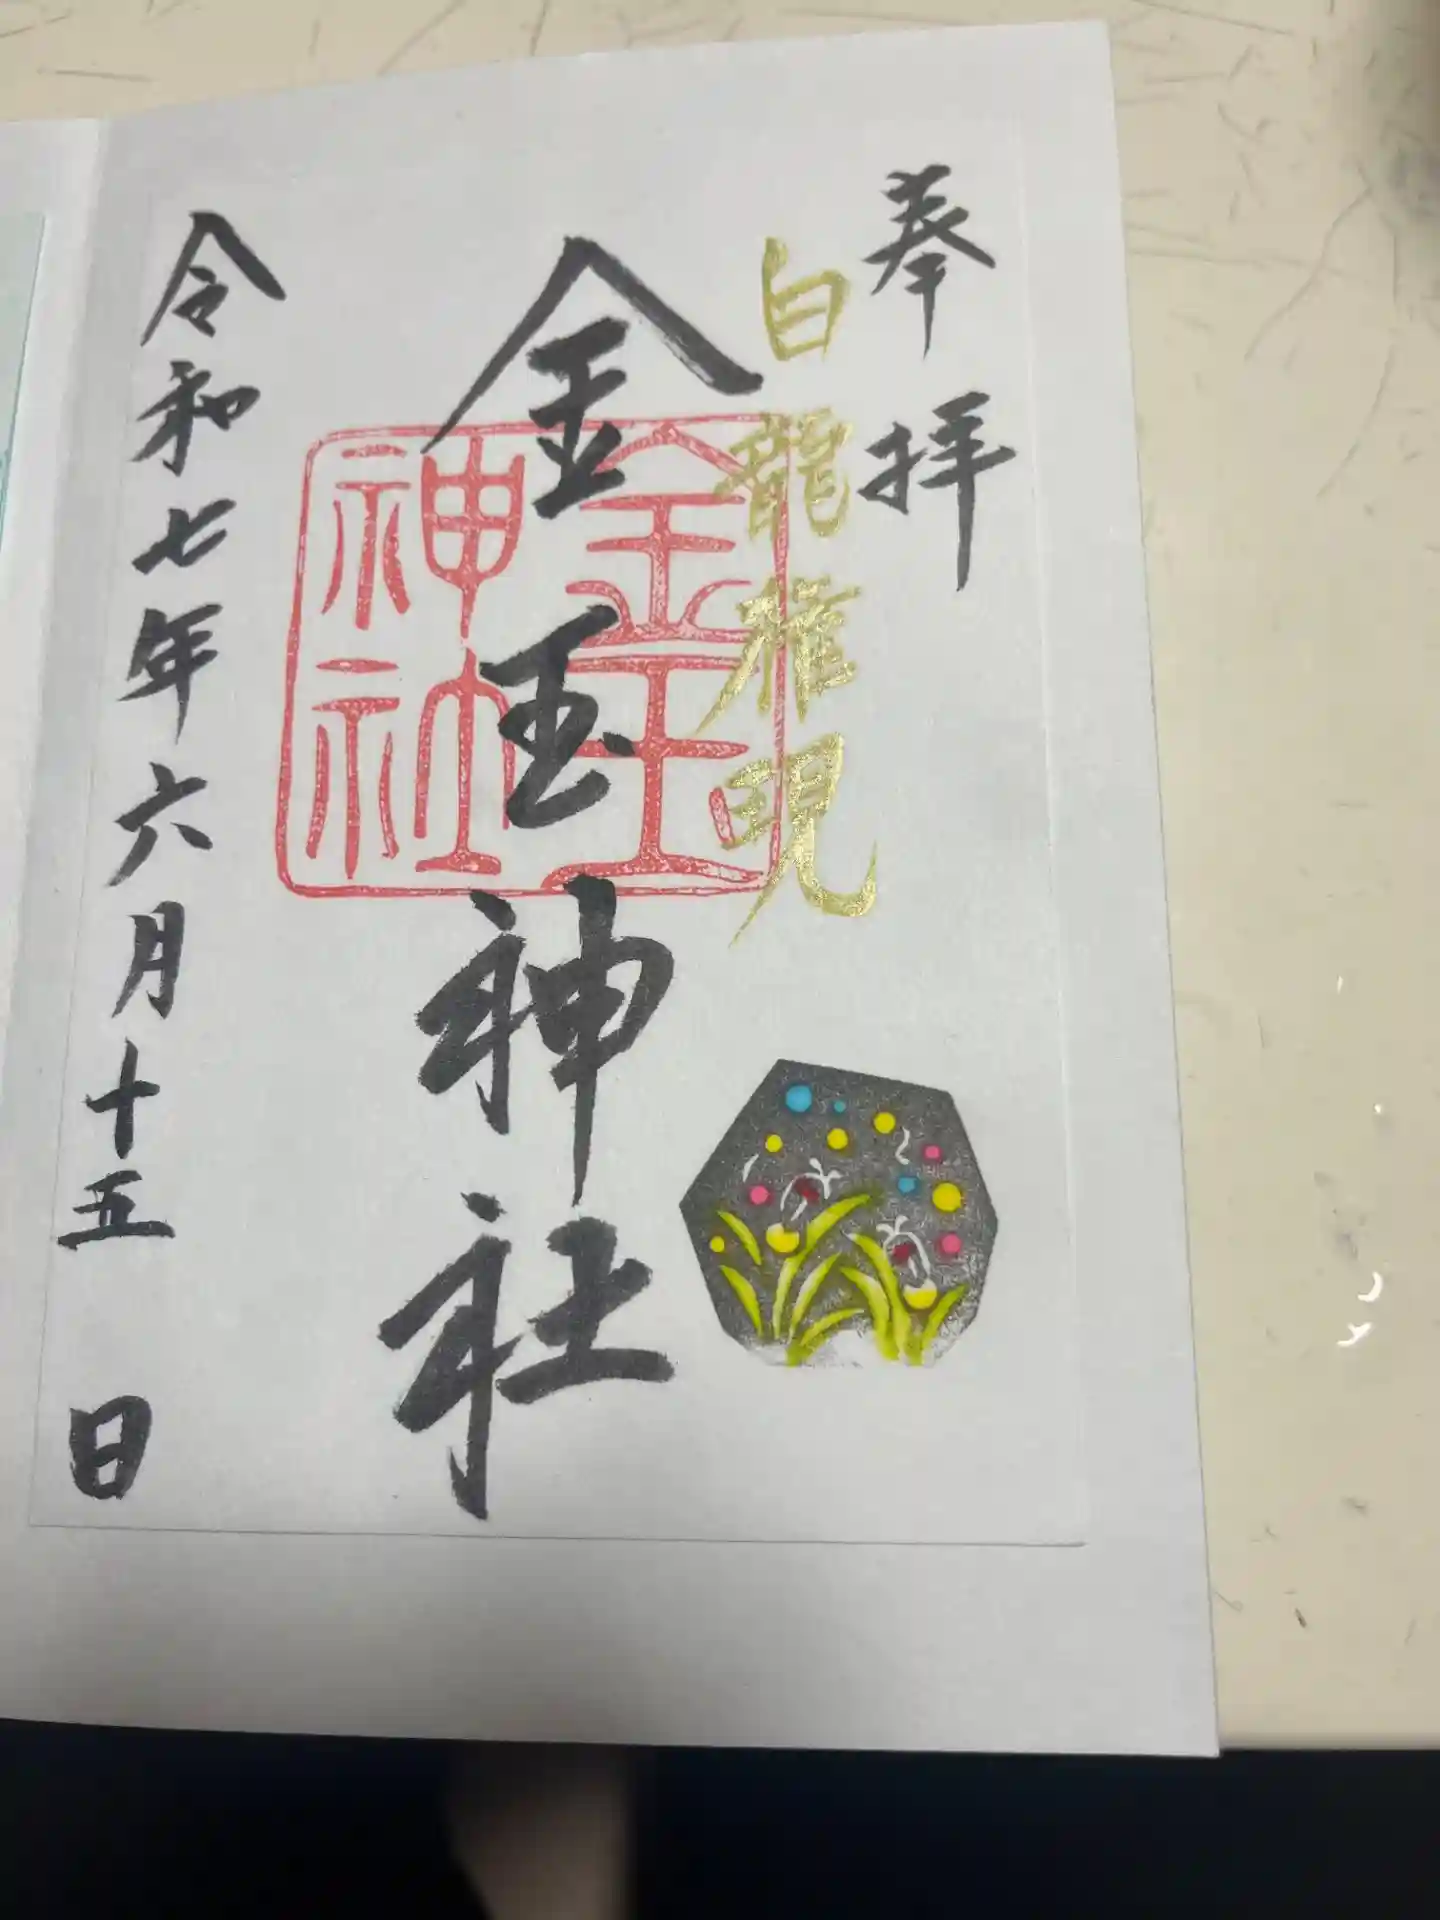 奉拝
白龍権現
金玉神社
金玉神社
令和七年六月十五日